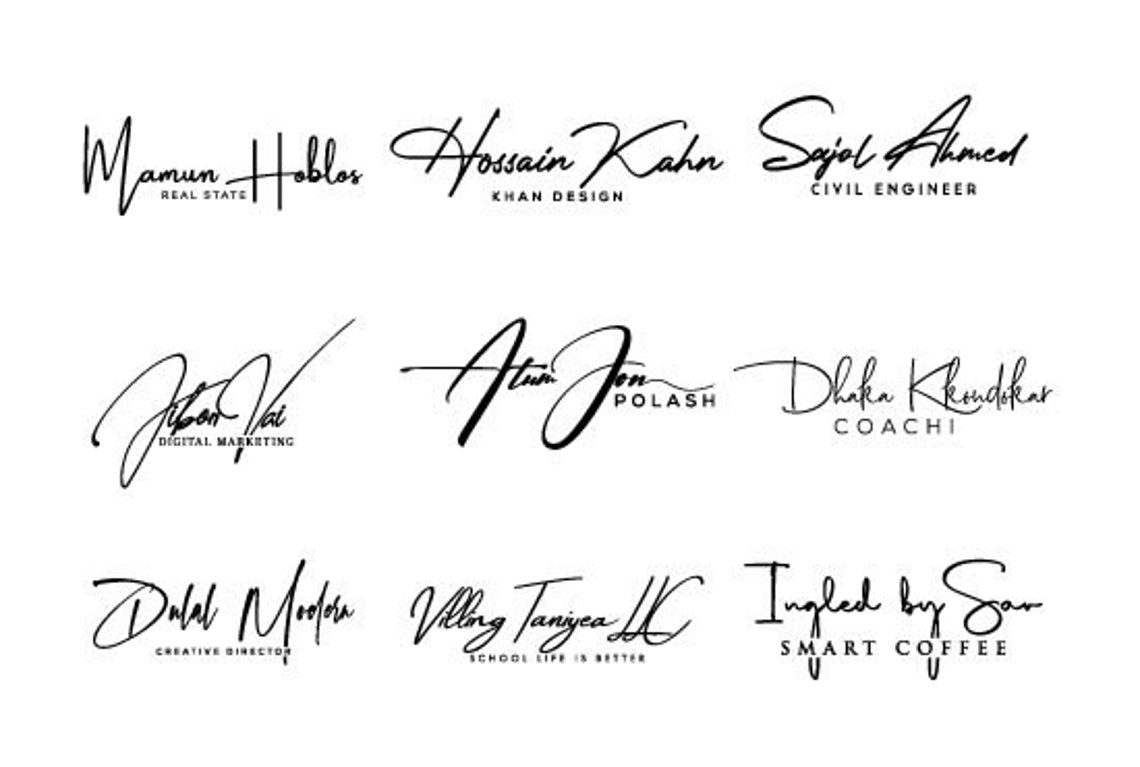 Mamun Hoblos
REAL STATE
Hossain Kahn
KHAN DESIGN
Sajol Ahmed
CIVIL ENGINEER
Jibon Vai
DIGITAL MARKETING
Alum Jon
POLASH
Dhaka Kkondokar
COACHI
Dulal Modern
CREATIVE DIRECTOR
Villing Taniyea LLC
SCHOOL LIFE IS BETTER
Ingled by Sov
SMART COFFEE